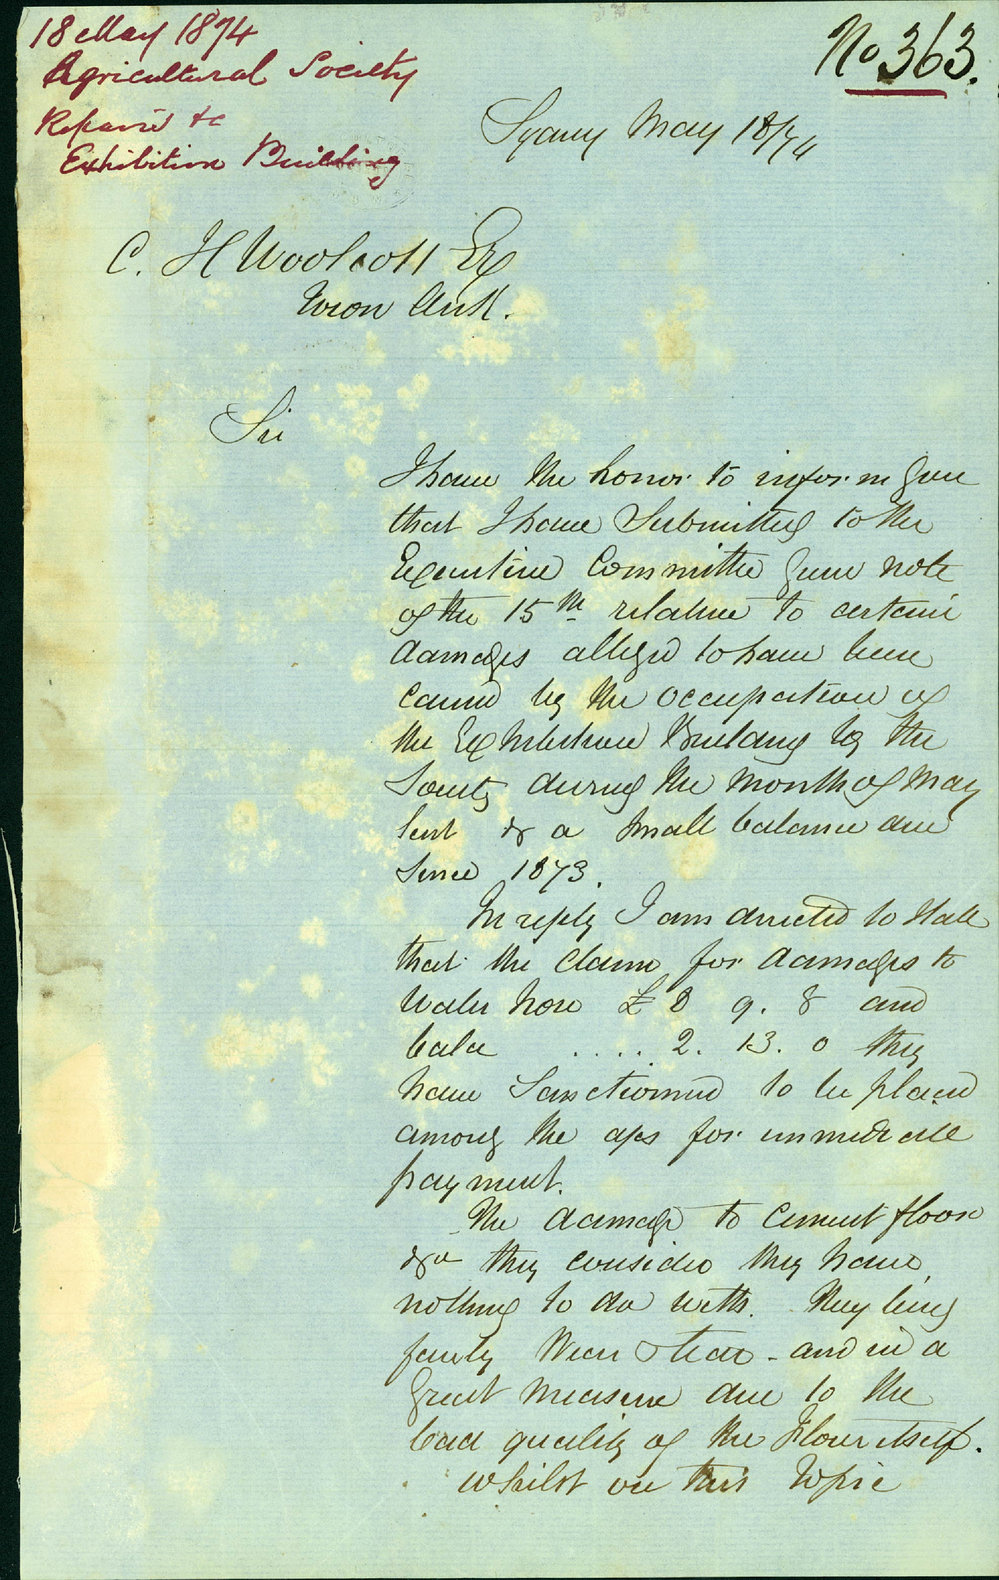 18 May 1874
Agricultural Society
Repairs &c
Exhibition Building
No 363.
Sydney May 18/74
C. H Woolcott Esq
Town Clerk.
Sir
I have the honor to inform you
that I have Submitted to the
Executive Committee your note
of the 15th relative to certain
damages alleged to have been
caused by the occupation of
the Exhibition Building by the
Society during the month of May
last & a small balance due
since 1873.
In reply I am directed to state
that the claim for damages to
Water hose £ 8 9. 8 and
bala .... 2. 13. 0 they
have Sanctioned to be placed
among the a/cs for immediate
payment.
The damage to Cement floor
&c they consider they have
nothing to do with. They being
fairly Wear & tear - and in a
great measure due to the
bad quality of the Floor itself.
Whilst on this Topic